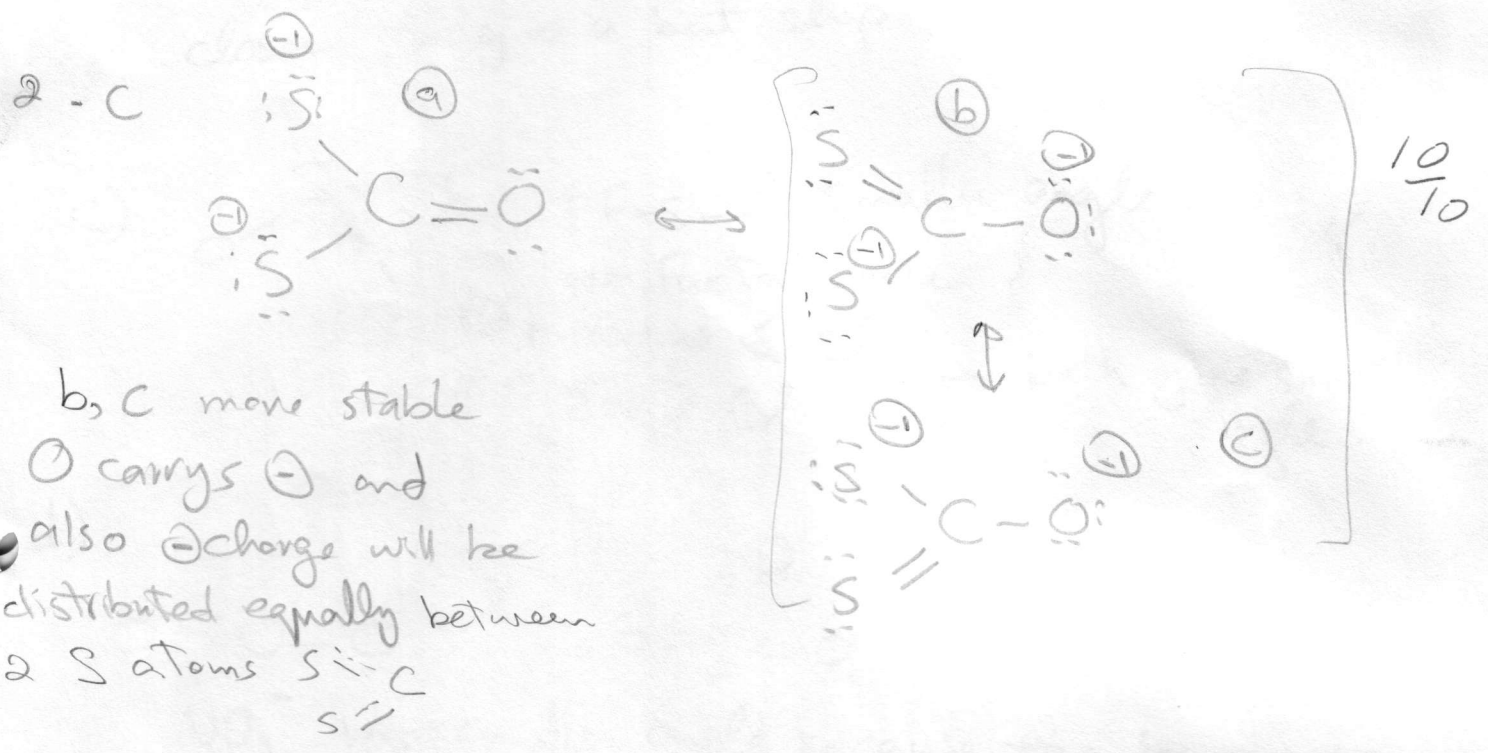 2 - C
-1
:S:
a
-1
:S
C=O
b
S
-1
-1
C-O:
:S
10/10
-1
:S
-1
C
C-O:
S
b, C more stable
O carrys ⊖ and
also ⊖charge will be
distributed equally between
2 S atoms S C
S